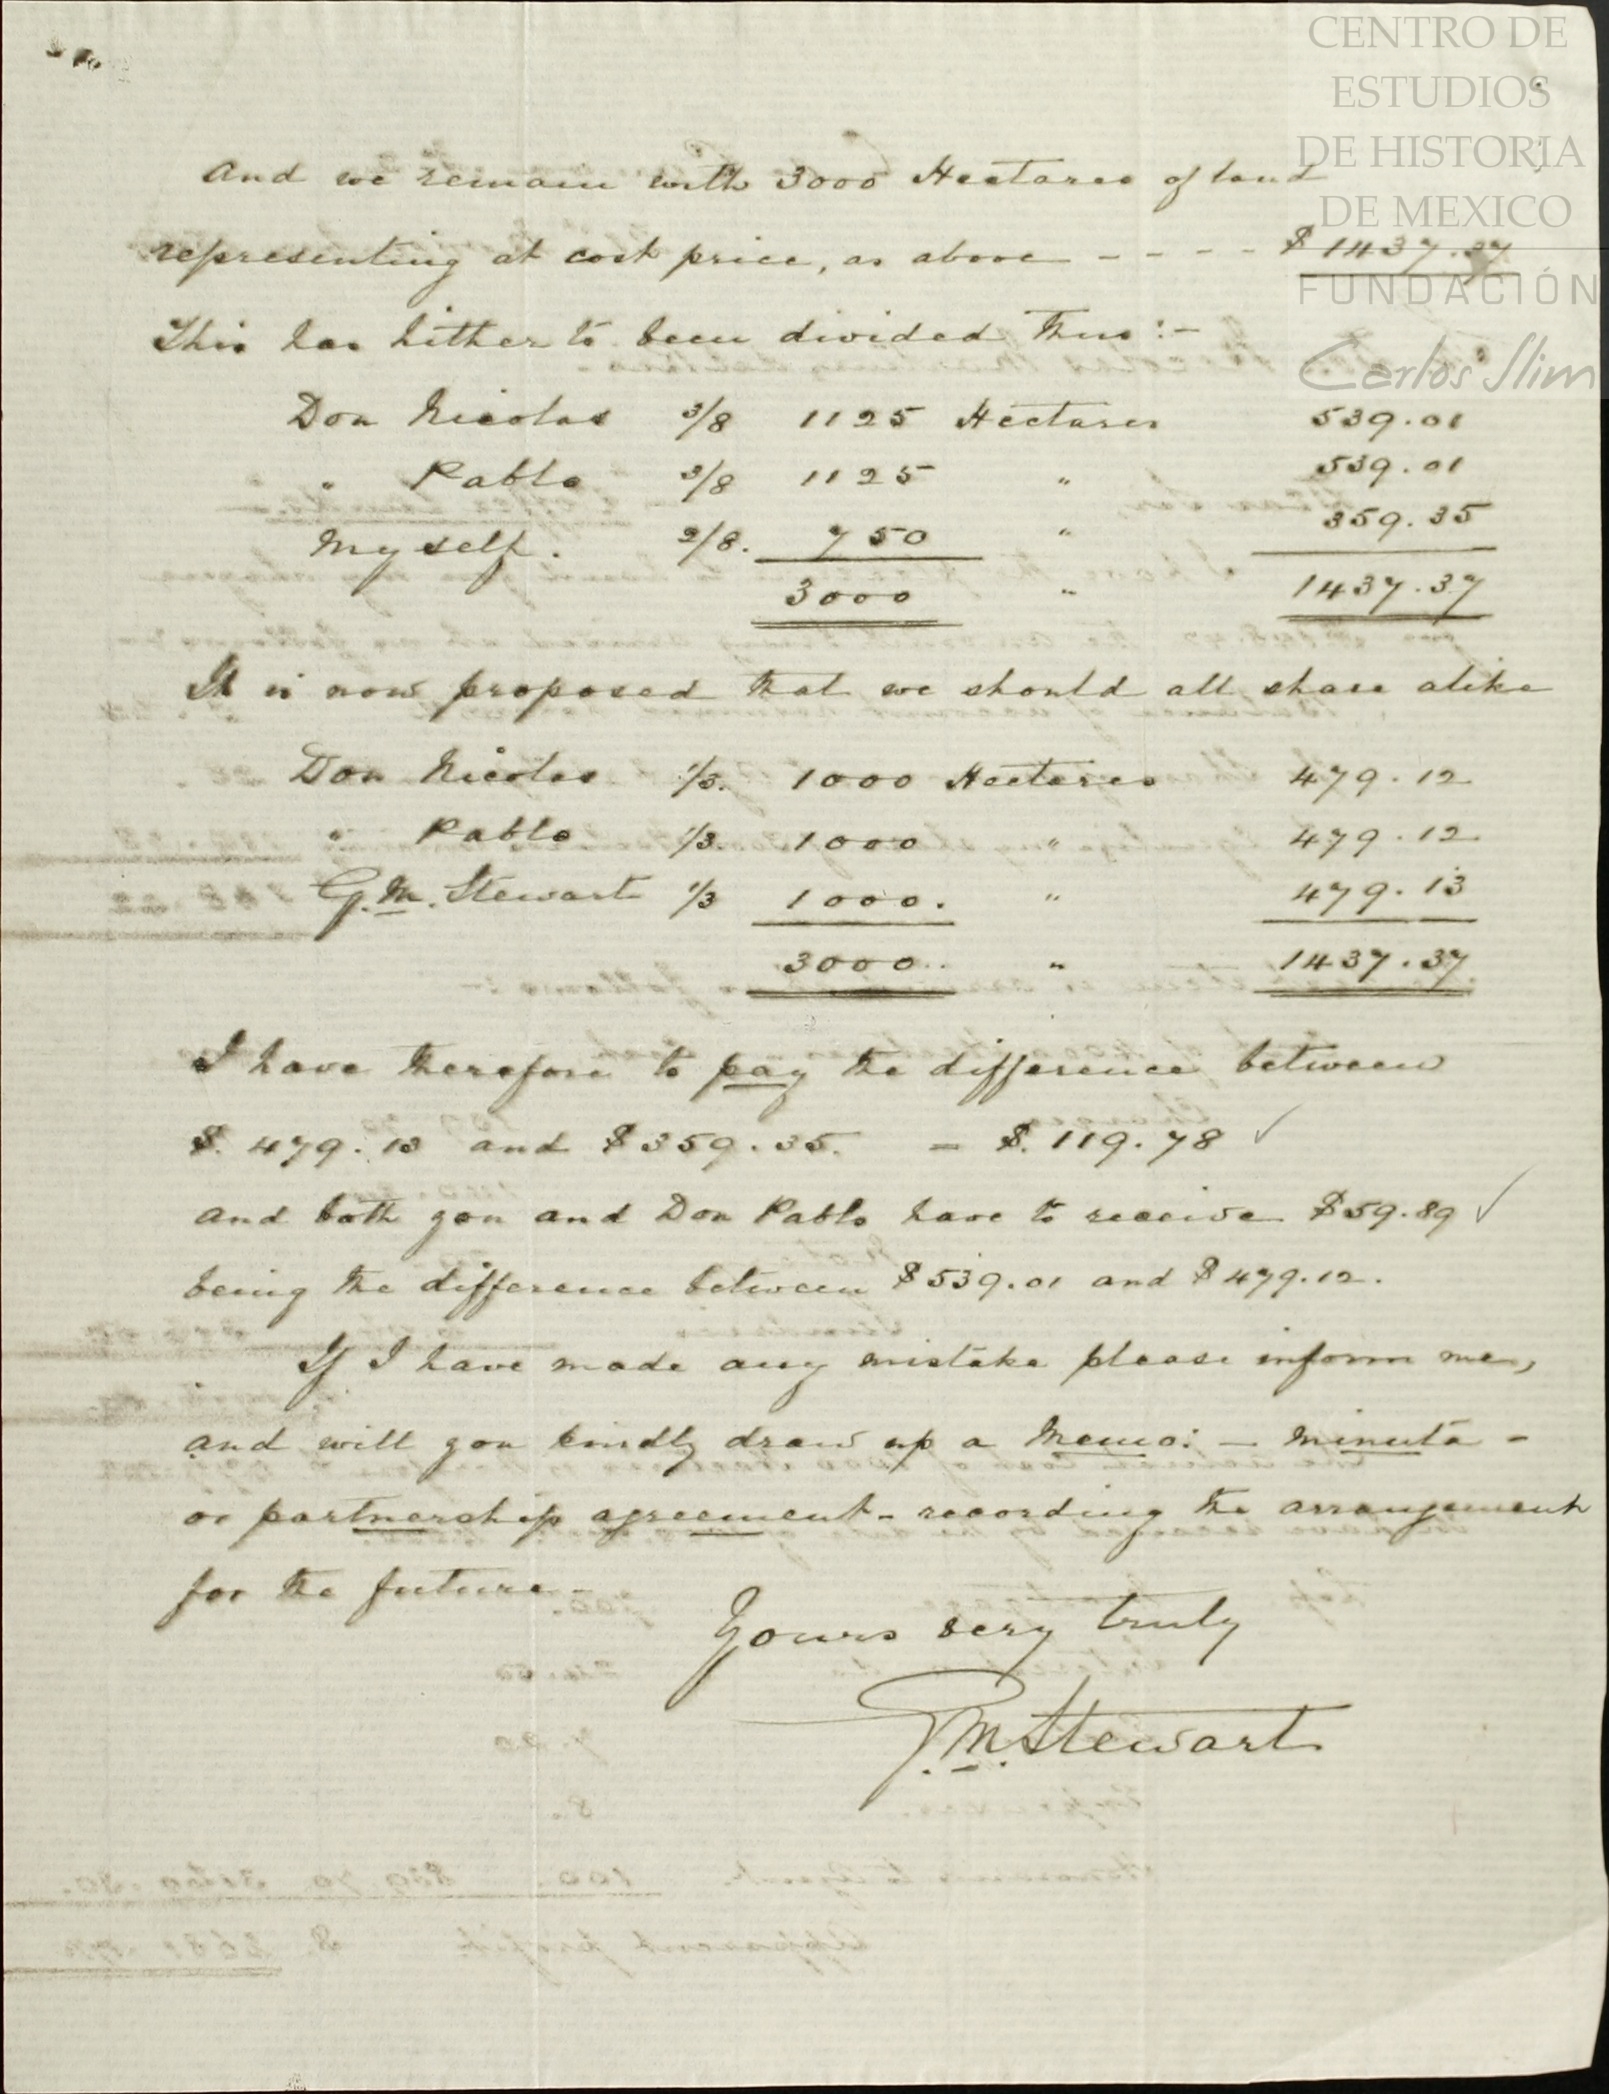 CENTRO DE
ESTUDIOS
DE HISTORIA
DE MEXICO
FUNDACIÓN
Carlos Slim
and we remain with 3000 Hectares of land
representing at cost price, as above - - - - $1437.37
This has hitherto been divided thus:-
Don Nicolas 3/8 1125 Hectares 539.01
" Pablo 3/8 1125 " 539.01
Myself. 2/8. 750 " 359.35
3000 " 1437.37
It is now proposed that we should all share alike
Don Nicolas 1/3. 1000 Hectares 479.12
" Pablo 1/3. 1000 " 479.12
G.M. Stewart 1/3 1000. " 479.13
3000.. " 1437.37
I have therefore to pay the difference between
$. 479.13 and $359.35. — $. 119.78 ✓
and both you and Don Pablo have to receive $59.89 ✓
being the difference between $539.01 and $479.12.
If I have made any mistake please inform me,
and will you kindly draw up a Memo: — minuta -
or partnership agreement - recording the arrangement
for the future -
Yours very truly
G.M. Stewart